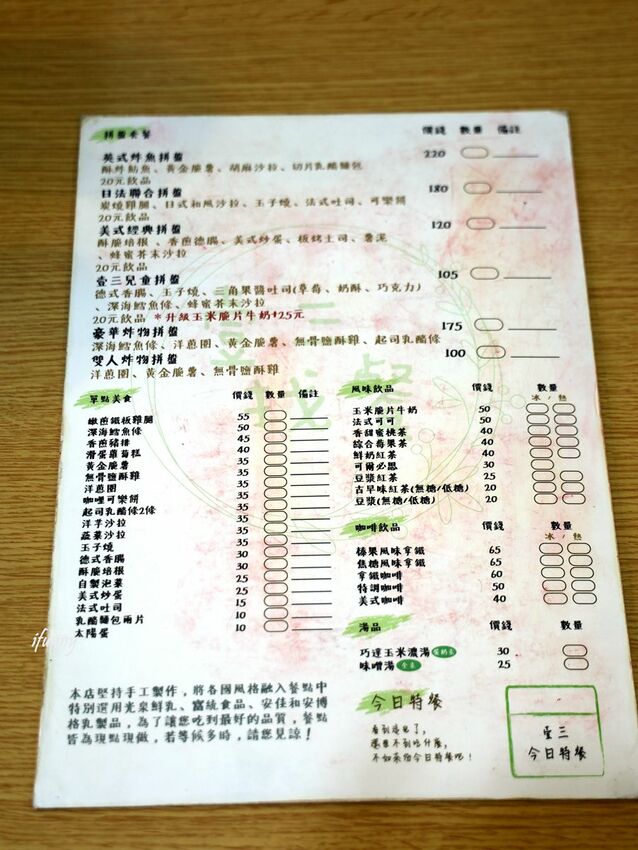 拼盤套餐 價錢 數量 備註
英式炸魚拼盤 220
酥炸魴魚、黃金脆薯、胡麻沙拉、切片乳酪麵包
20元飲品
日法聯合拼盤 180
炭燒雞腿、日式和風沙拉、玉子燒、法式吐司、可樂餅
20元飲品
美式經典拼盤 120
酥脆培根、香煎德腸、美式炒蛋、板烤土司、薯泥
、蜂蜜芥末沙拉
20元飲品
壹三兒童拼盤 105
德式香腸、玉子燒、三角果醬吐司(草莓、奶酥、巧克力)
、深海鱈魚條、蜂蜜芥末沙拉
20元飲品 *升級玉米脆片牛奶+25元
豪華炸物拼盤 175
深海鱈魚條、洋蔥圈、黃金脆薯、無骨鹽酥雞、起司乳酪條
雙人炸物拼盤 100
洋蔥圈、黃金脆薯、無骨鹽酥雞
單點美食 價錢 數量 備註
嫩煎鐵板雞腿 55
深海鱈魚條 50
香煎豬排 45
滑蛋蘿蔔糕 40
黃金脆薯 35
無骨鹽酥雞 35
洋蔥圈 35
咖哩可樂餅 35
起司乳酪條2條 35
洋芋沙拉 35
蔬菜沙拉 35
玉子燒 35
德式香腸 30
酥脆培根 30
自製泡菜 25
美式炒蛋 25
法式吐司 15
乳酪麵包兩片 10
太陽蛋 10
風味飲品 價錢 數量
冰/熱
玉米脆片牛奶 50
法式可可 50
香甜蜜桃茶 40
綜合莓果茶 40
鮮奶紅茶 40
可爾必思 30
豆漿紅茶 25
古早味紅茶(無糖/低糖) 20
豆漿(無糖/低糖) 20
咖啡飲品 價錢 數量
冰/熱
榛果風味拿鐵 65
焦糖風味拿鐵 65
拿鐵咖啡 60
特調咖啡 50
美式咖啡 40
湯品 價錢 數量
巧達玉米濃湯 蛋奶素 30
味噌湯 全素 25
本店堅持手工製作,將各國風格融入餐點中
特別選用光泉鮮乳、富統食品、安佳和安博
格乳製品,為了讓您吃到最好的品質,餐點
皆為現點現做,若等候多時,請您見諒!
今日特餐
看到這兒了,
還想不到吃什麼,
不如來份今日特餐吧!
壹三
今日特餐